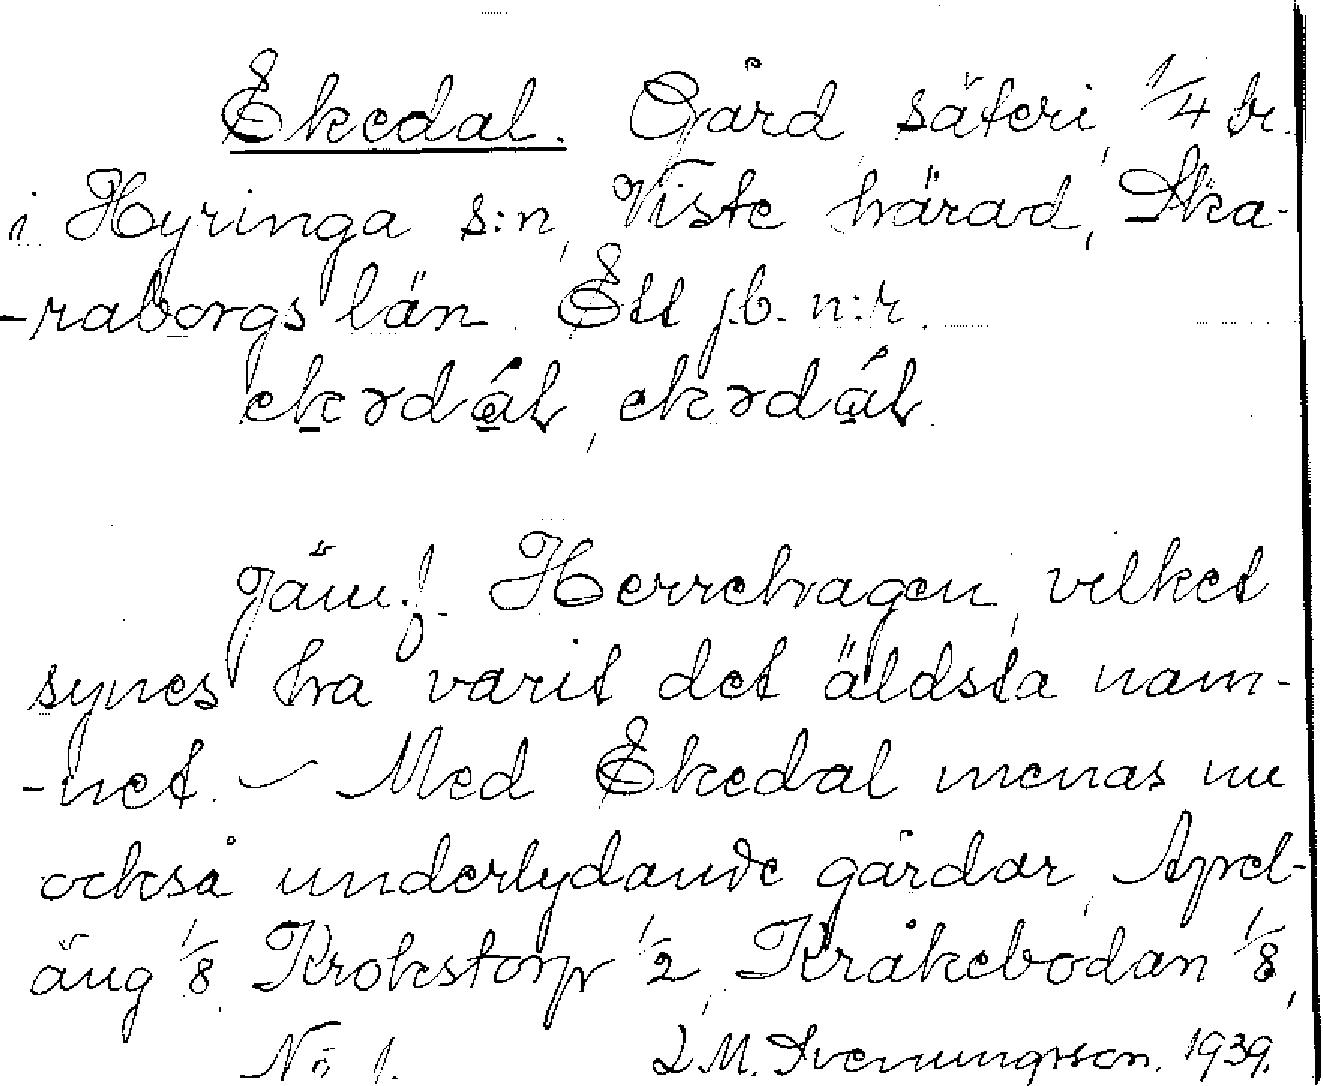 Ekedal. Gård, säteri, 1/4 hr.
i Hyringa s:n, Viste härad, Ska-
-raborgs län. Ett jb. n:r.
ekədál, ekədál.
Jämf. Herrehagen, vilket
synes ha varit det äldsta nam-
-net. — Med Ekedal menas nu
också underlydande gårdar, Apel-
äng 1/8, Krokstorp 1/2, Kråkebodan 1/8,
No 1. L.M. Svenungsson. 1939.